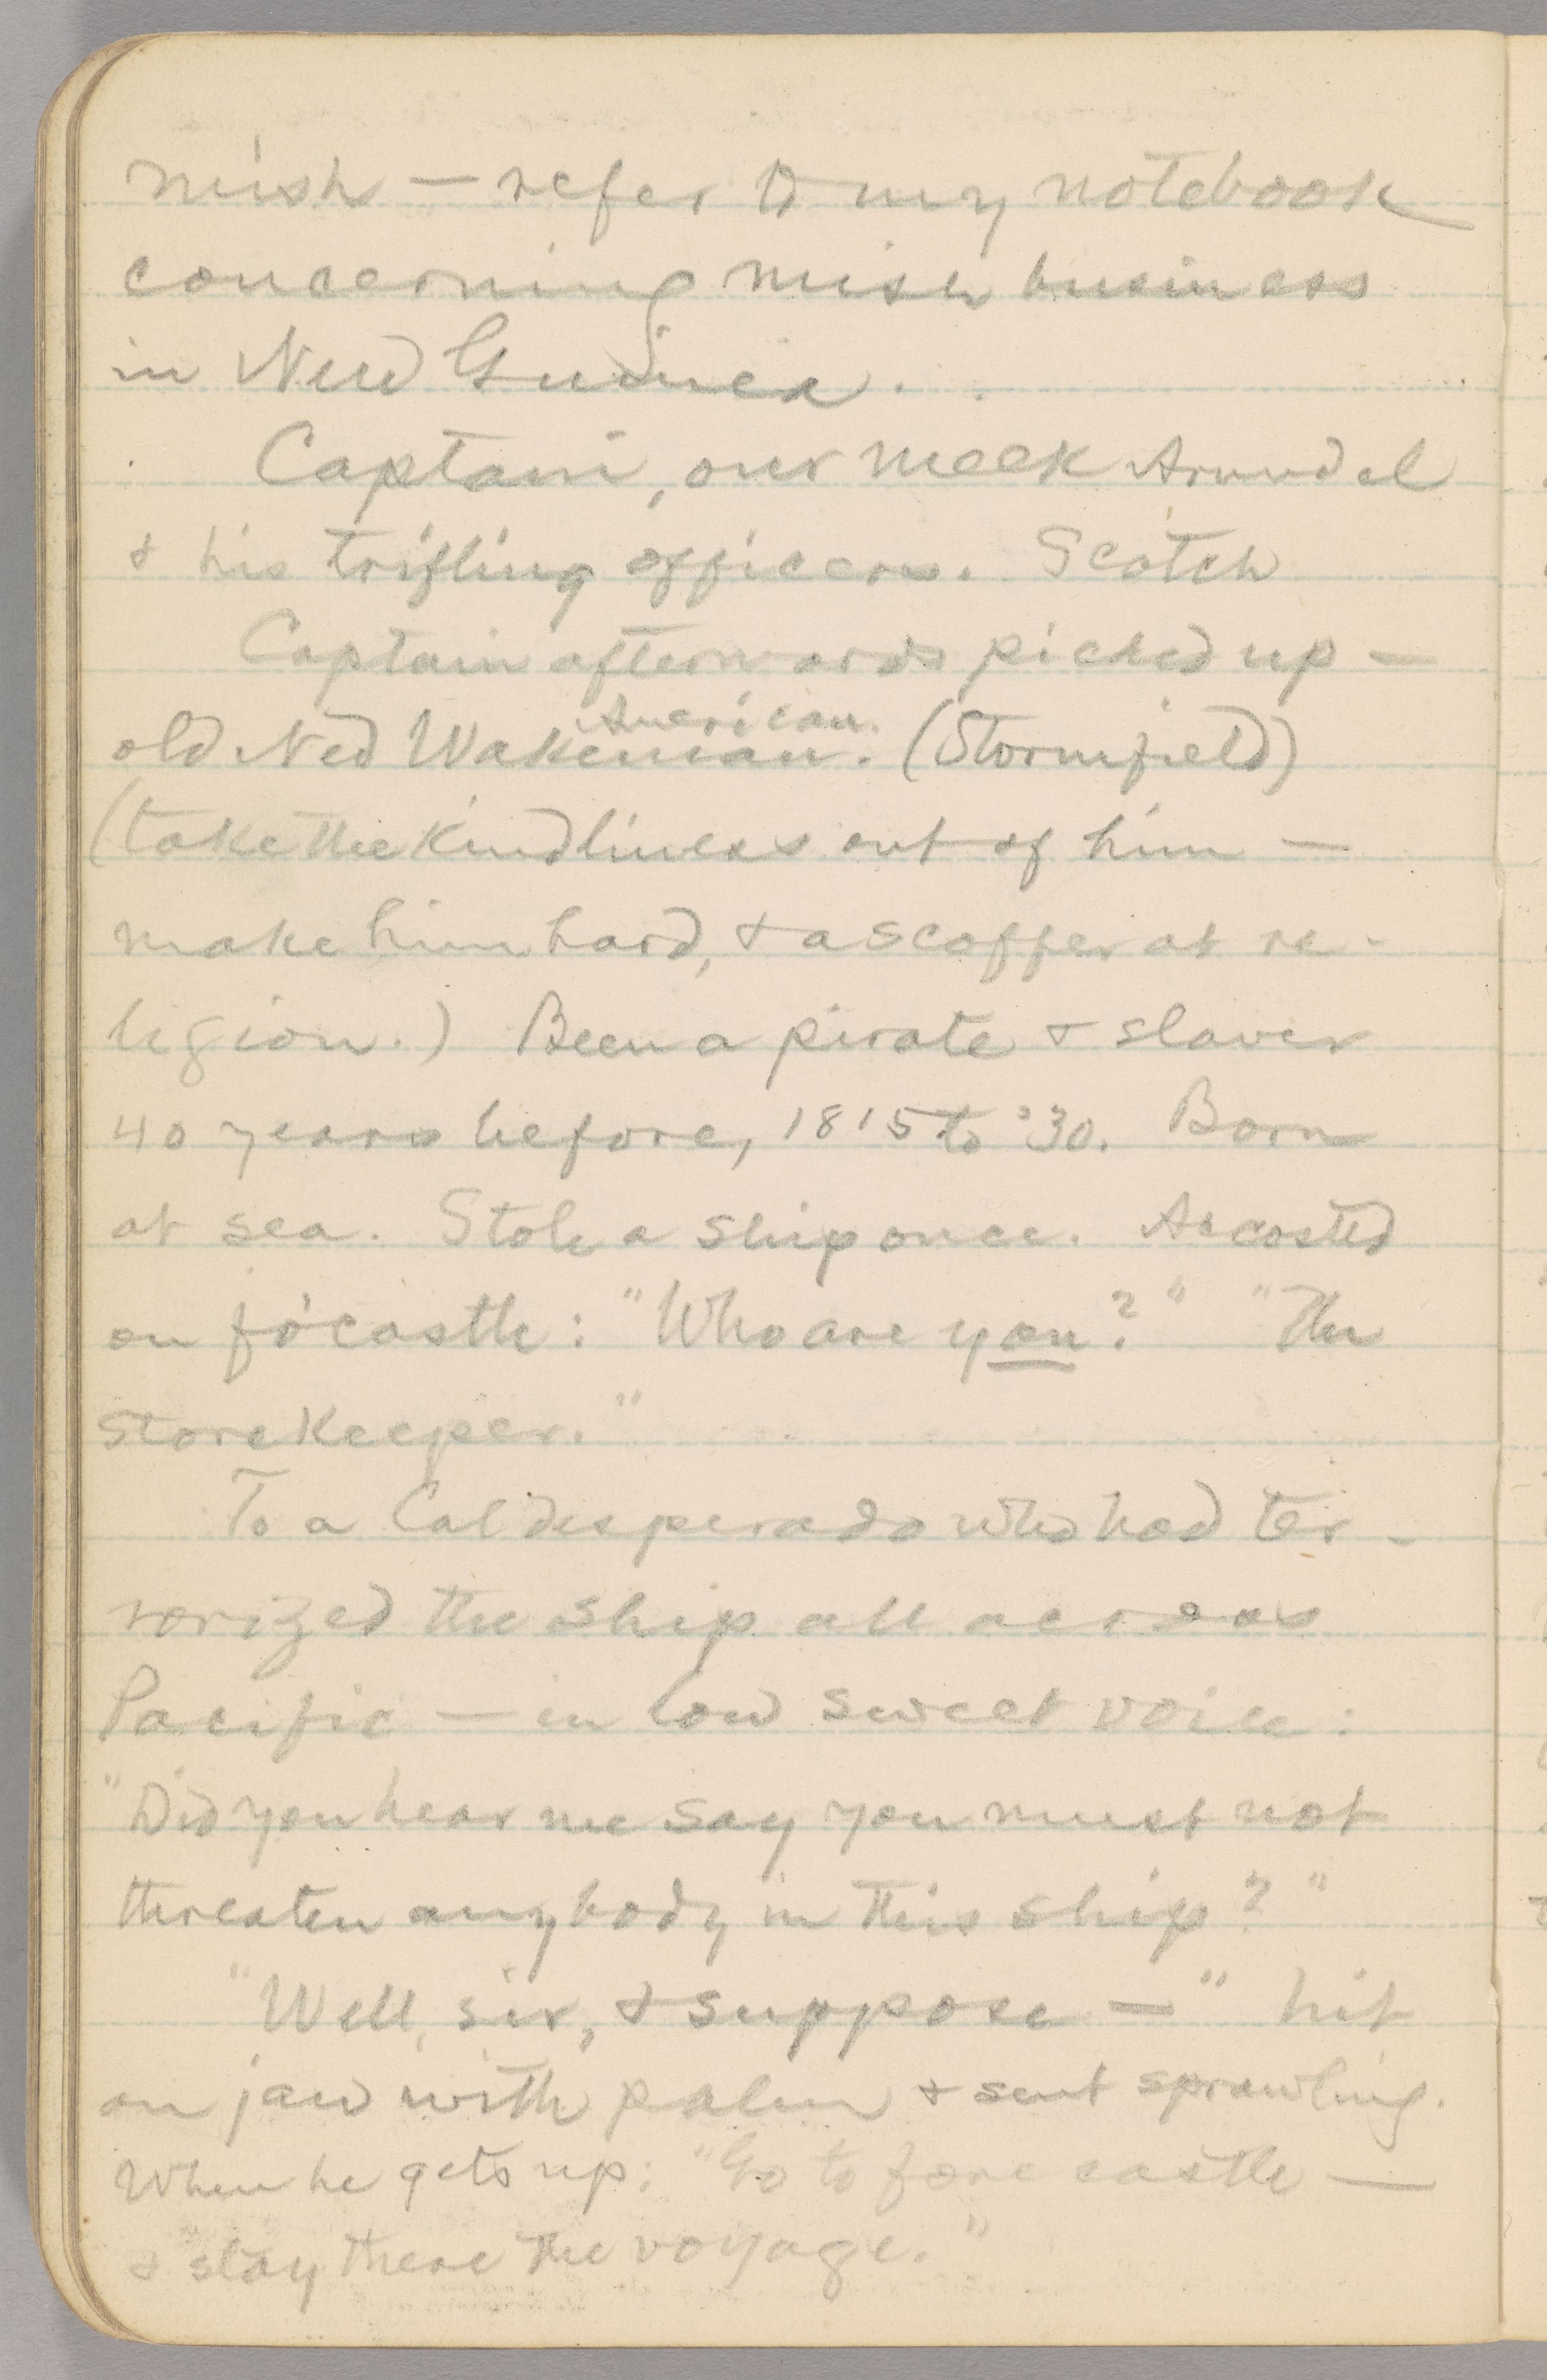 mish — refer to my notebook
concerning mish business
in New Guinea.
Captain, our meek Arundel
& his trifling officers. Scotch
Captain afterwards picked up —
American.
old Ned Wakeman. (Stormfield)
(take the kindliness out of him —
make him hard, & a scoffer at re-
ligion.) Been a pirate & slaver
40 years before, 1815 to '30. Born
at sea. Stole a ship once. Accosted
on fo'castle: "Who are you?" "The
storekeeper."
To a Cal desperado who had ter-
rorized the ship all across
Pacific — in low sweet voice:
"Did you hear me say you must not
threaten anybody in this ship?"
"Well, sir, & suppose —" hit
on jaw with palm & sent sprawling.
When he gets up: "Go to forecastle —
& stay there the voyage."